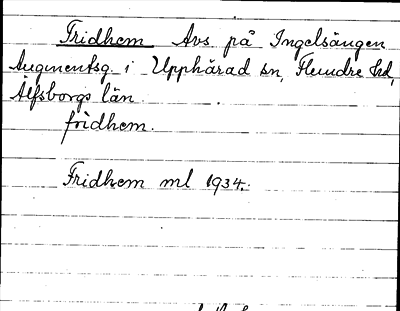 Fridhem Avs på Ingelsängen
Augmentsg. i Upphärad sn, Flundre hd,
Älfsborgs län.
fridhem.
Fridhem ml 1934.